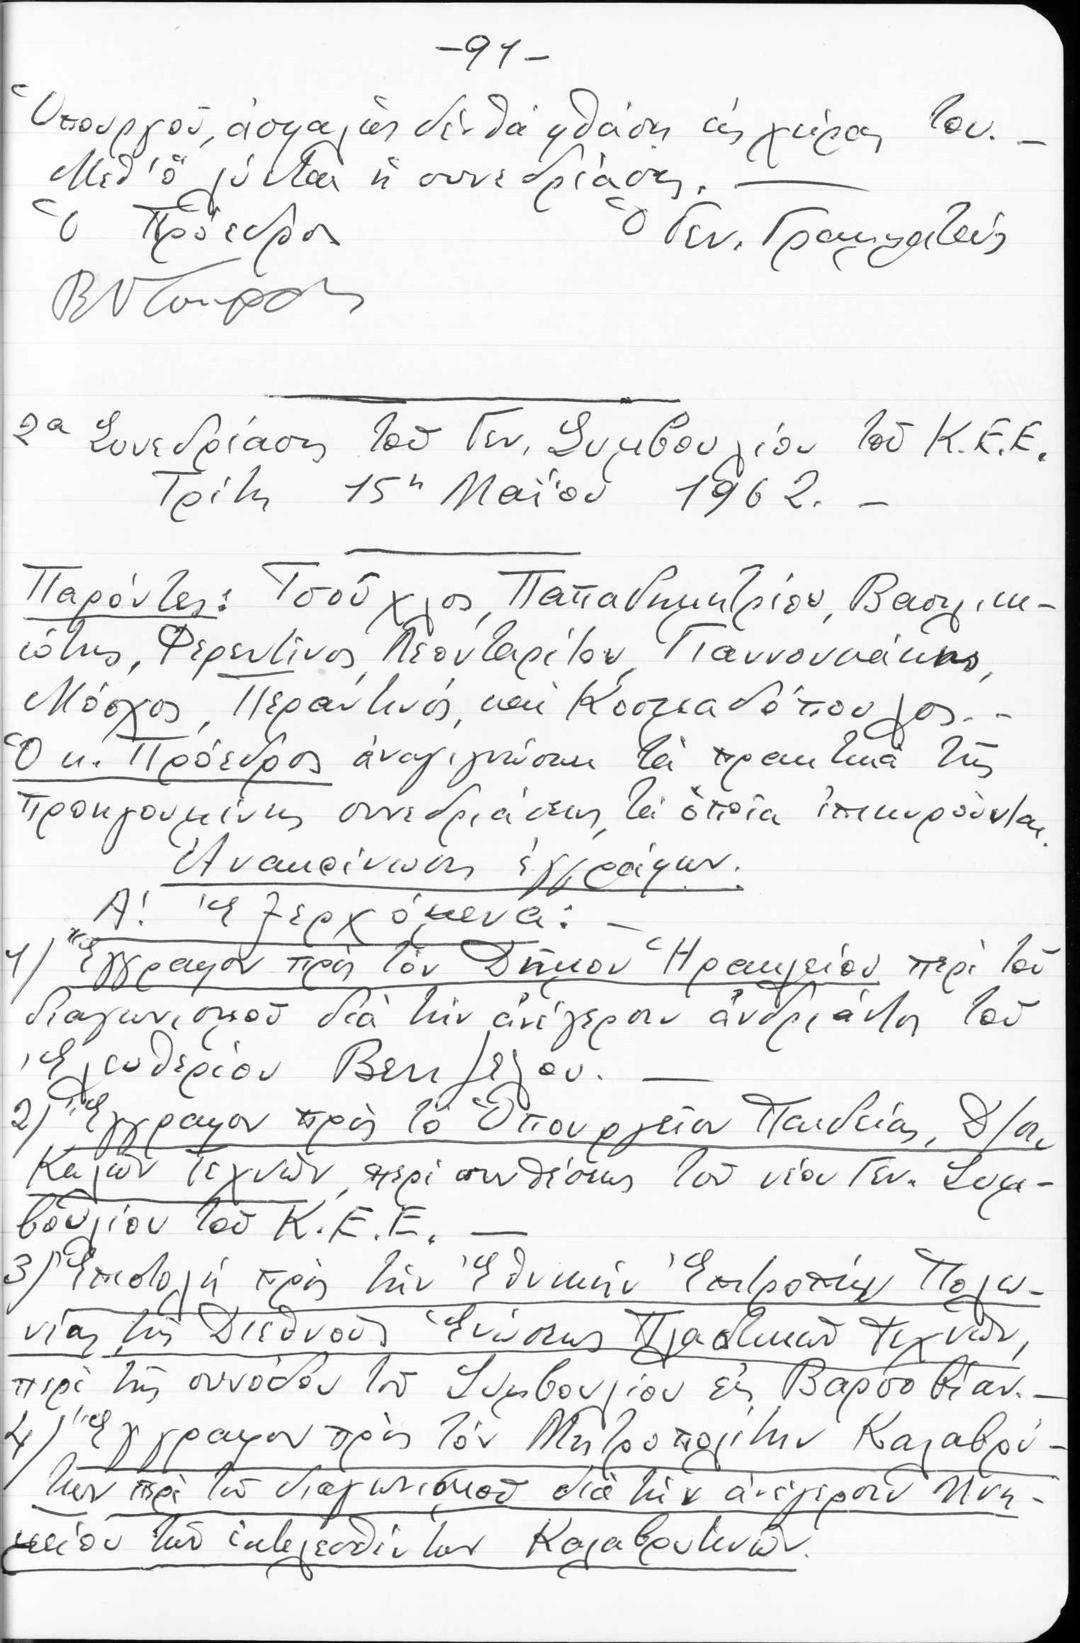 -91-
Ὑπουργοῦ, ἀσφαλῶς δέν θά φθάσῃ εἰς χεῖρας του. -
Μεθ' ὅ λύεται ἡ συνεδρίασις. —
Ὁ Πρόεδρος Ὁ Γεν. Γραμματεύς
2α Συνεδρίασις τοῦ Γεν. Συμβουλίου τοῦ Κ.Ε.Ε.
Τρίτη 15η Μαΐου 1962. -
Παρόντες: Τσοῦχλος, Παπαδημητρίου, Βασιλικ-
ιώτης, Φερεντῖνος, Λεονταρίτου, Γιαννουκάκης,
Μόσχος, Περαντινός, καὶ Κοσμαδόπουλος. -
Ὁ κ. Πρόεδρος ἀναγιγνώσκει τὰ πρακτικὰ τῆς
προηγουμένης συνεδριάσεως, τὰ ὁποῖα ἐπικυροῦνται.
Ἀνακοίνωσις ἐγγράφων.
Α! Ἐξερχόμενα: -
1) Ἔγγραφον πρὸς τὸν Δῆμον Ἡρακλείου περὶ τοῦ
διαγωνισμοῦ διὰ τὴν ἀνέγερσιν ἀνδριάντος τοῦ
Ἐλευθερίου Βενιζέλου. —
2) Ἔγγραφον πρὸς τὸ Ὑπουργεῖον Παιδείας, Δ/σιν
Καλῶν Τεχνῶν, περὶ συνθέσεως τοῦ νέου Γεν. Συμ-
βουλίου τοῦ Κ.Ε.Ε. —
3) Ἐπιστολὴ πρὸς τὴν Ἐθνικὴν Ἐπιτροπὴν Πολω-
νίας τῆς Διεθνοῦς Ἑνώσεως Πλαστικῶν Τεχνῶν,
περὶ τῆς συνόδου τοῦ Συμβουλίου εἰς Βαρσοβίαν. -
4) Ἔγγραφον πρὸς τὸν Μητροπολίτην Καλαβρύ-
των περὶ τοῦ διαγωνισμοῦ διὰ τὴν ἀνέγερσιν Μνη-
μείου τῶν ἐκτελεσθέντων Καλαβρυτινῶν.